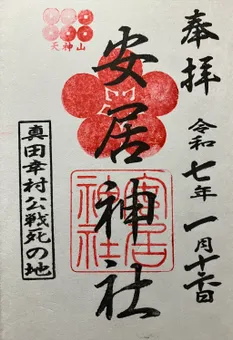 奉拝
令和七年 一月十六日
安居神社
天神山
安居神社
真田幸村公戦死の地